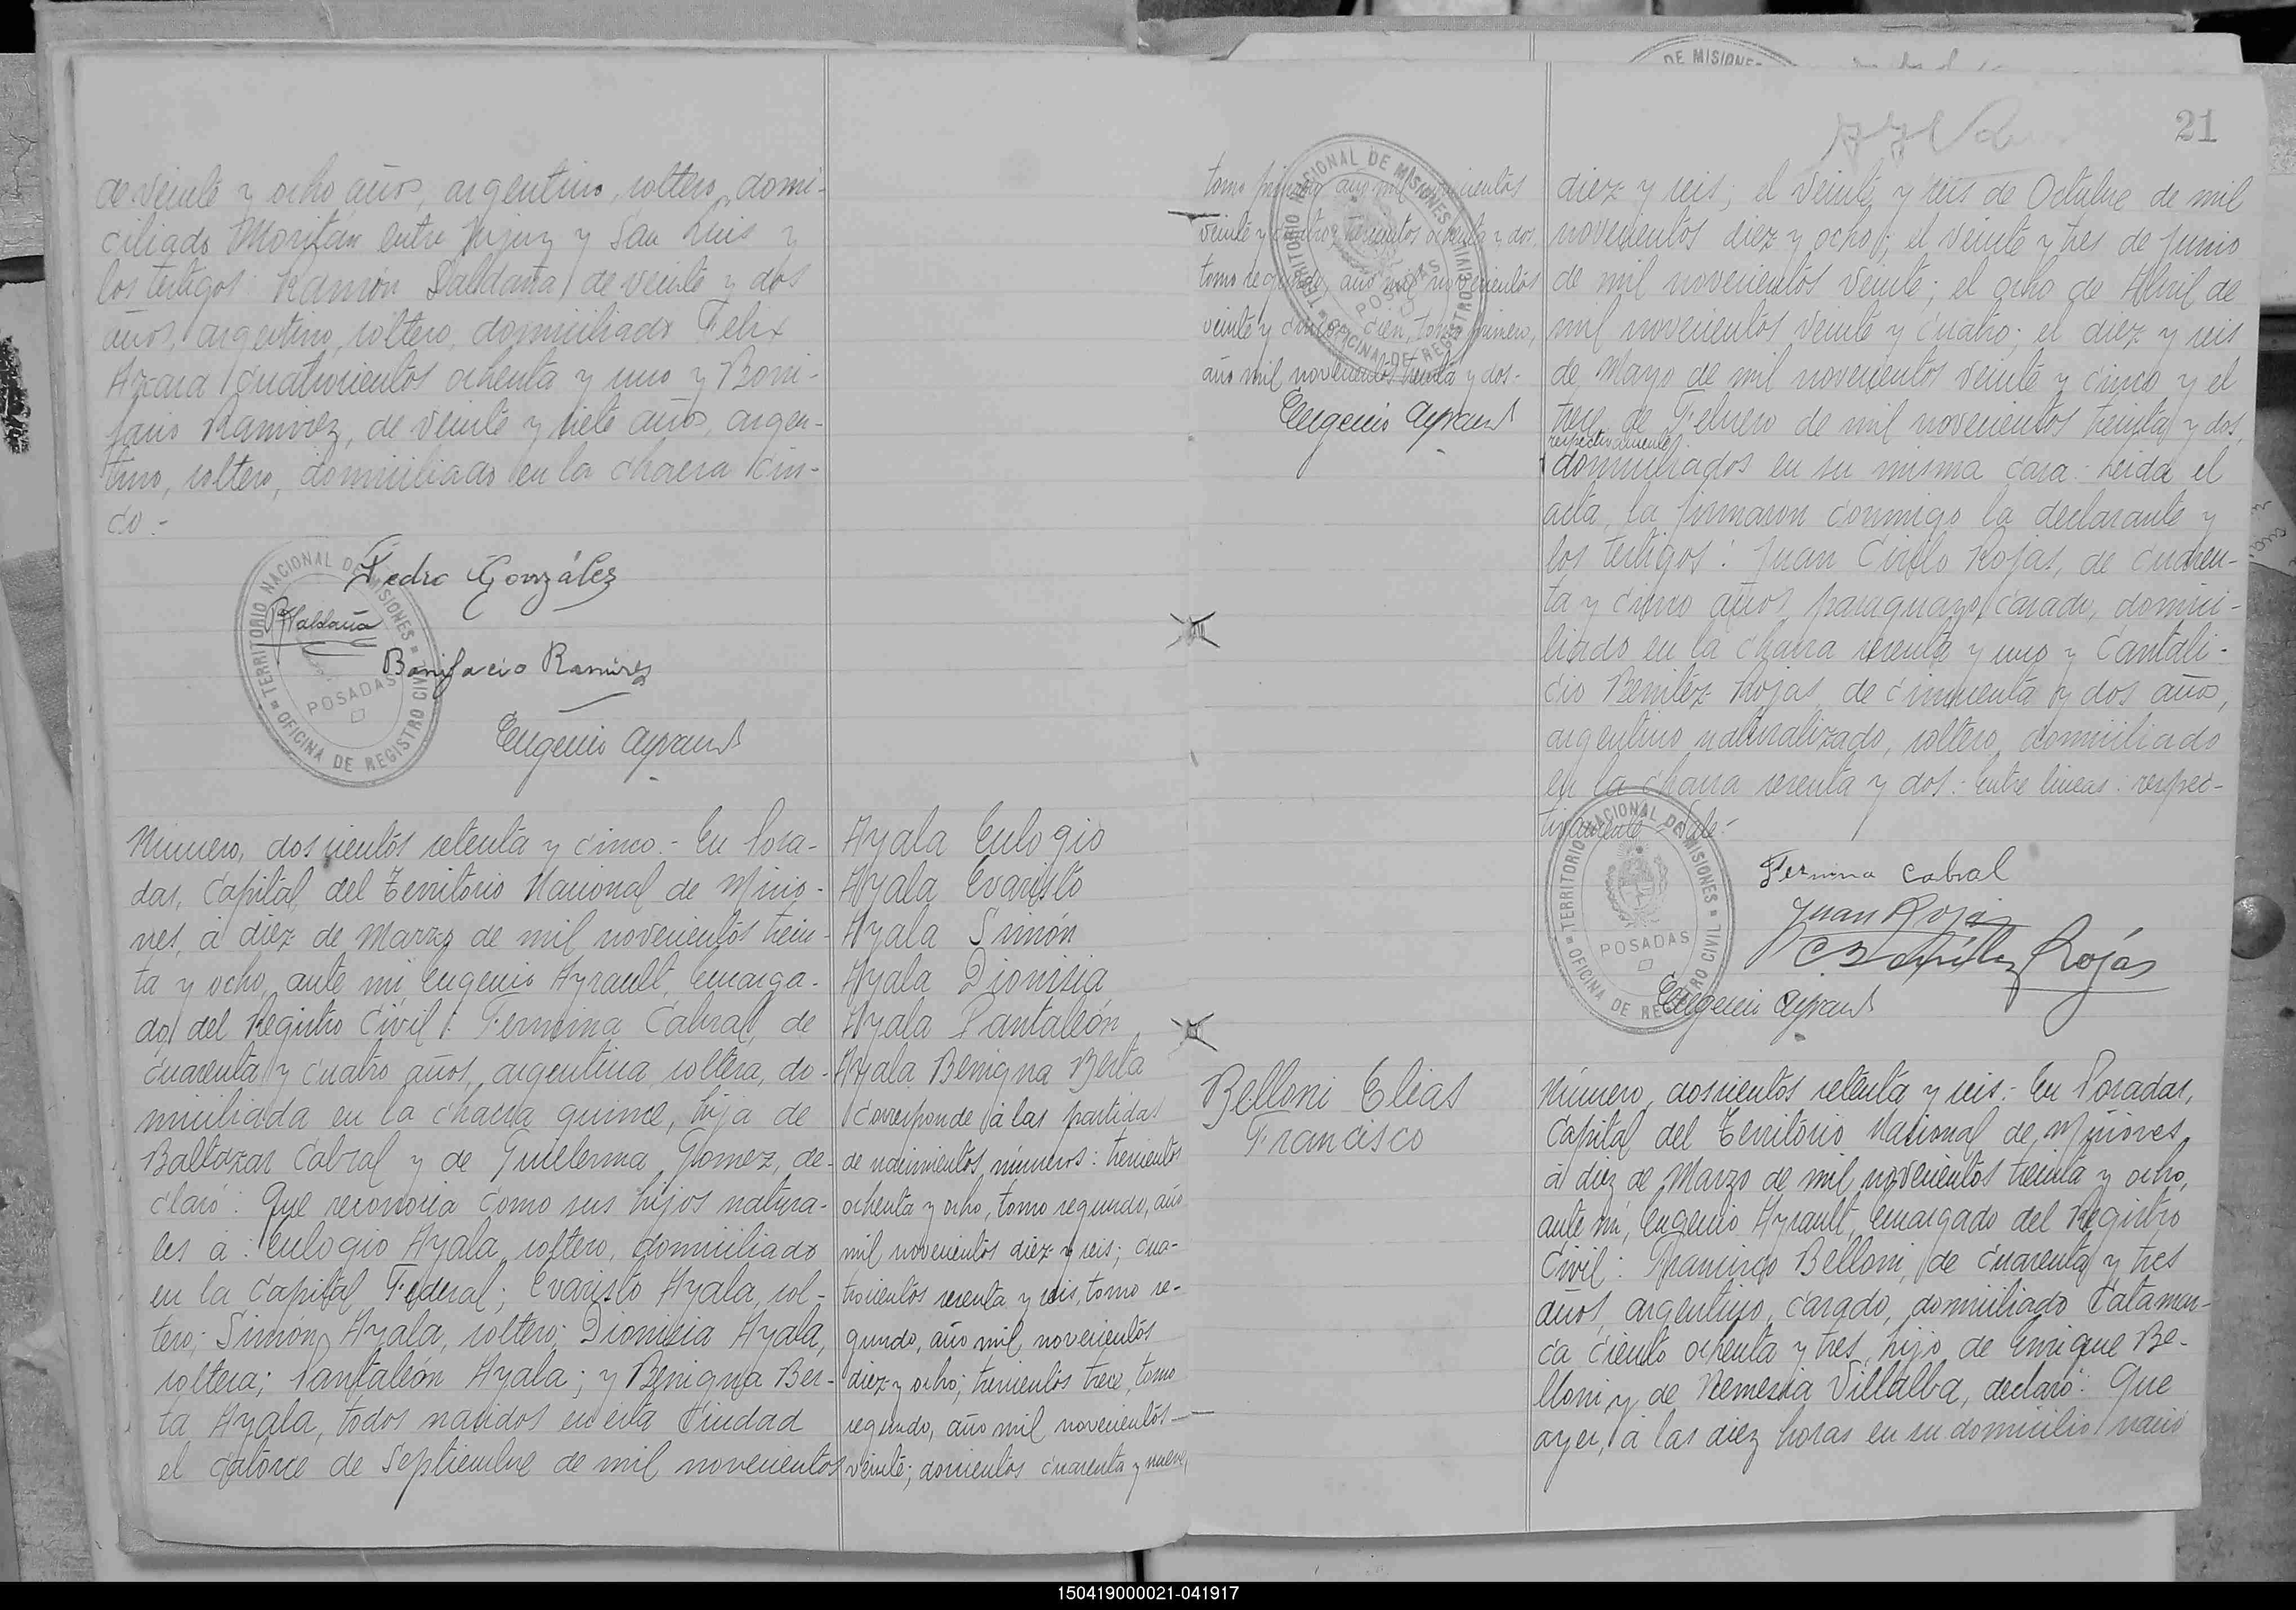 de veinte y ocho años, argentino, soltero, domi-
ciliado Moritán entre Jujuy y San Luis y
los testigos: Ramón Saldaña, de veinte y dos
años, argentino, soltero, domiciliado Felix
Azara cuatrocientos ochenta y uno y Boni-
facio Ramirez, de veinte y siete años, argen-
tino, soltero, domiciliado en la chacra cin-
co.-
TERRITORIO NACIONAL DE MISIONES
OFICINA DE REGISTRO CIVIL
POSADAS
Pedro González
RSaldaña
Bonifacio Ramirez
Eugenio Ayrault
Número, doscientos setenta y cinco.- En Posa-
das, Capital del Territorio Nacional de Misio-
nes, á diez de Marzo de mil novecientos trein-
ta y ocho, ante mi, Eugenio Ayrault, Encarga-
do del Registro Civil: Fermina Cabral, de
cuarenta y cuatro años, argentina, soltera, do-
miciliada en la chacra quince, hija de
Baltazar Cabral y de Guillerma Gomez, de-
claró: Que reconocia como sus hijos natura-
les á: Eulogio Ayala, soltero, domiciliado
en la Capital Federal; Evaristo Ayala, sol-
tero; Simón Ayala, soltero; Dionisia Ayala,
soltera; Pantaleón Ayala; y Benigna Ber-
ta Ayala, todos nacidos en esta Ciudad
el catorce de Septiembre de mil novecientos
Ayala Eulogio
Ayala Evaristo
Ayala Simón
Ayala Dionisia
Ayala Pantaleón
Ayala Benigna Berta
Corresponde á las partidas
de nacimientos, números: trescientos
ochenta y ocho, tomo segundo, año
mil novecientos diez y seis; cua-
trocientos sesenta y seis, tomo se-
gundo, año mil novecientos
diez y ocho; trescientos trece, tomo
segundo, año mil novecientos
veinte; doscientos cuarenta y nueve,
DE MISIONES
21
tomo primero, año mil novecientos
veinte y cuatro; trescientos ochenta y dos,
tomo segundo, año mil novecientos
veinte y cinco; cien, tomo primero,
año mil novecientos treinta y dos.-
Eugenio Ayrault
TERRITORIO NACIONAL DE MISIONES
OFICINA DE REGISTRO CIVIL
POSADAS
diez y seis; el veinte y seis de Octubre de mil
novecientos diez y ocho; el veinte y tres de Junio
de mil novecientos veinte; el ocho de Abril de
mil novecientos veinte y cuatro; el diez y seis
de Mayo de mil novecientos veinte y cinco y el
trece de Febrero de mil novecientos treinta y dos,
respectivamente,
domiciliados en su misma casa. Leida el
acta, la firmaron conmigo la declarante y
los testigos: Juan Cirilo Rojas, de cuaren-
ta y cinco años, paraguayo, casado, domici-
liado en la chacra sesenta y uno y Cantali-
cio Benitez Rojas, de cincuenta y dos años,
argentino naturalizado, soltero, domiciliado
en la chacra sesenta y dos.- Entre lineas: respec-
tivamente.- Vale.-
TERRITORIO NACIONAL DE MISIONES
OFICINA DE REGISTRO CIVIL
POSADAS
Fermina Cabral
Juan Rojas
C Benítez Rojás
Eugenio Ayrault
Belloni Elias
Francisco
Número, doscientos setenta y seis.- En Posadas,
Capital del Territorio Nacional de Misiones,
á diez de Marzo de mil novecientos treinta y ocho,
ante mi, Eugenio Ayrault, Encargado del Registro
Civil: Francisco Belloni, de cuarenta y tres
años, argentino, casado, domiciliado Catamar-
ca ciento ochenta y tres, hijo de Enrique Be-
lloni y de Nemesia Villalba, declaró: Que
ayer, á las diez horas en su domicilio nació
150419000021-041917